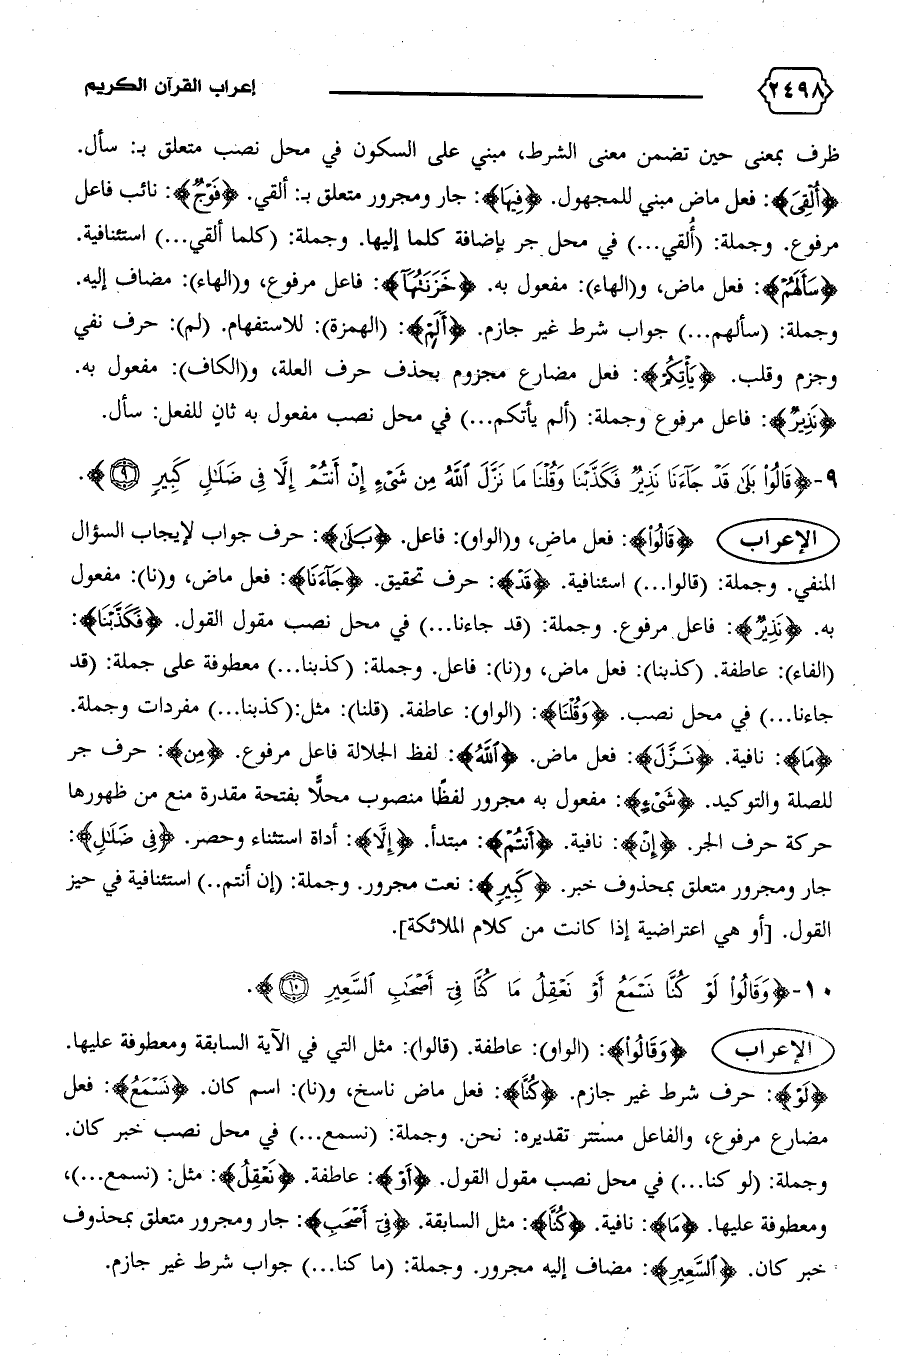 ٢٤٩٨ إعراب القرآن الكريم
ظرف بمعنى حين تضمن معنى الشرط، مبني على السكون في محل نصب متعلق بـ: سأل.
﴿أُلْقِىَ﴾: فعل ماض مبني للمجهول. ﴿فِيهَا﴾: جار ومجرور متعلق بـ: ألقي. ﴿فَوْجٌ﴾: نائب فاعل
مرفوع. وجملة: (أُلقي...) في محل جر بإضافة كلما إليها. وجملة: (كلما ألقي...) استئنافية.
﴿سَأَلَهُمْ﴾: فعل ماض، و(الهاء): مفعول به. ﴿خَزَنَتُهَآ﴾: فاعل مرفوع، و(الهاء): مضاف إليه.
وجملة: (سألهم...) جواب شرط غير جازم. ﴿أَلَمْ﴾: (الهمزة): للاستفهام. (لم): حرف نفي
وجزم وقلب. ﴿يَأْتِكُمْ﴾: فعل مضارع مجزوم بحذف حرف العلة، و(الكاف): مفعول به.
﴿نَذِيرٌ﴾: فاعل مرفوع وجملة: (ألم يأتكم...) في محل نصب مفعول به ثانٍ للفعل: سأل.
٩-﴿قَالُوا۟ بَلَىٰ قَدْ جَآءَنَا نَذِيرٌ فَكَذَّبْنَا وَقُلْنَا مَا نَزَّلَ ٱللَّهُ مِن شَىْءٍ إِنْ أَنتُمْ إِلَّا فِى ضَلَـٰلٍ كَبِيرٍ ٩﴾.
الإعراب ﴿قَالُوا۟﴾: فعل ماض، و(الواو): فاعل. ﴿بَلَىٰ﴾: حرف جواب لإيجاب السؤال
المنفي. وجملة: (قالوا...) استئنافية. ﴿قَدْ﴾: حرف تحقيق. ﴿جَآءَنَا﴾: فعل ماض، و(نا): مفعول
به. ﴿نَذِيرٌ﴾: فاعل مرفوع. وجملة: (قد جاءنا...) في محل نصب مقول القول. ﴿فَكَذَّبْنَا﴾:
(الفاء): عاطفة. (كذبنا): فعل ماض، و(نا): فاعل. وجملة: (كذبنا...) معطوفة على جملة: (قد
جاءنا...) في محل نصب. ﴿وَقُلْنَا﴾: (الواو): عاطفة. (قلنا): مثل:(كذبنا...) مفردات وجملة.
﴿مَا﴾: نافية. ﴿نَزَّلَ﴾: فعل ماض. ﴿ٱللَّهُ﴾: لفظ الجلالة فاعل مرفوع. ﴿مِن﴾: حرف جر
للصلة والتوكيد. ﴿شَىْءٍ﴾: مفعول به مجرور لفظًا منصوب محلًّا بفتحة مقدرة منع من ظهورها
حركة حرف الجر. ﴿إِنْ﴾: نافية. ﴿أَنتُمْ﴾: مبتدأ. ﴿إِلَّا﴾: أداة استثناء وحصر. ﴿فِى ضَلَـٰلٍ﴾:
جار ومجرور متعلق بمحذوف خبر. ﴿كَبِيرٍ﴾: نعت مجرور. وجملة: (إن أنتم..) استئنافية في حيز
القول. [أو هي اعتراضية إذا كانت من كلام الملائكة].
١٠-﴿وَقَالُوا۟ لَوْ كُنَّا نَسْمَعُ أَوْ نَعْقِلُ مَا كُنَّا فِىٓ أَصْحَـٰبِ ٱلسَّعِيرِ ١٠﴾.
الإعراب ﴿وَقَالُوا۟﴾: (الواو): عاطفة. (قالوا): مثل التي في الآية السابقة ومعطوفة عليها.
﴿لَوْ﴾: حرف شرط غير جازم. ﴿كُنَّا﴾: فعل ماض ناسخ، و(نا): اسم كان. ﴿نَسْمَعُ﴾: فعل
مضارع مرفوع، والفاعل مستتر تقديره: نحن. وجملة: (نسمع...) في محل نصب خبر كان.
وجملة: (لو كنا...) في محل نصب مقول القول. ﴿أَوْ﴾: عاطفة. ﴿نَعْقِلُ﴾: مثل: (نسمع...)،
ومعطوفة عليها. ﴿مَا﴾: نافية. ﴿كُنَّا﴾: مثل السابقة. ﴿فِىٓ أَصْحَـٰبِ﴾: جار ومجرور متعلق بمحذوف
خبر كان. ﴿ٱلسَّعِيرِ﴾: مضاف إليه مجرور. وجملة: (ما كنا...) جواب شرط غير جازم.